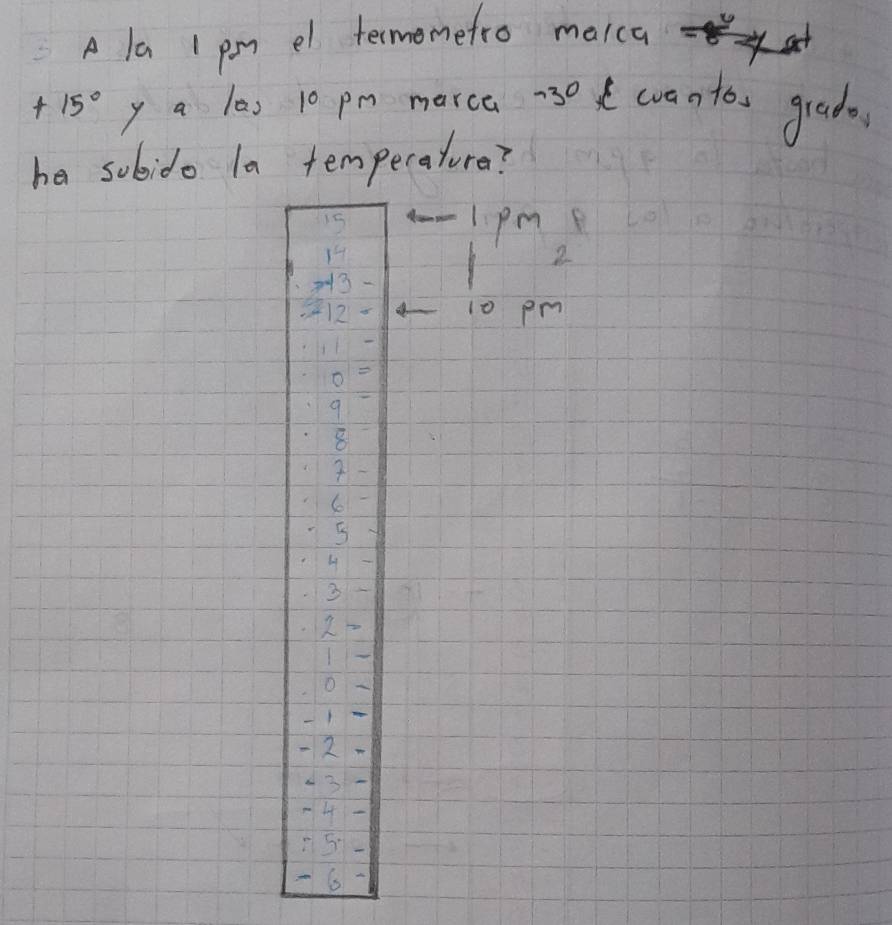 A la 1 pm el termometro marca
+15° y a las 10 pm marca -3° cuantos grados
ha subido la temperatura?
15 ← 1 pm
14 2
13 -
12 - ← 10 pm
11 -
10 =
9 -
8
7 -
6 -
5 -
4 -
3 -
2 -
1 -
0 -
-1 -
-2 -
-3 -
-4 -
-5 -
-6 -